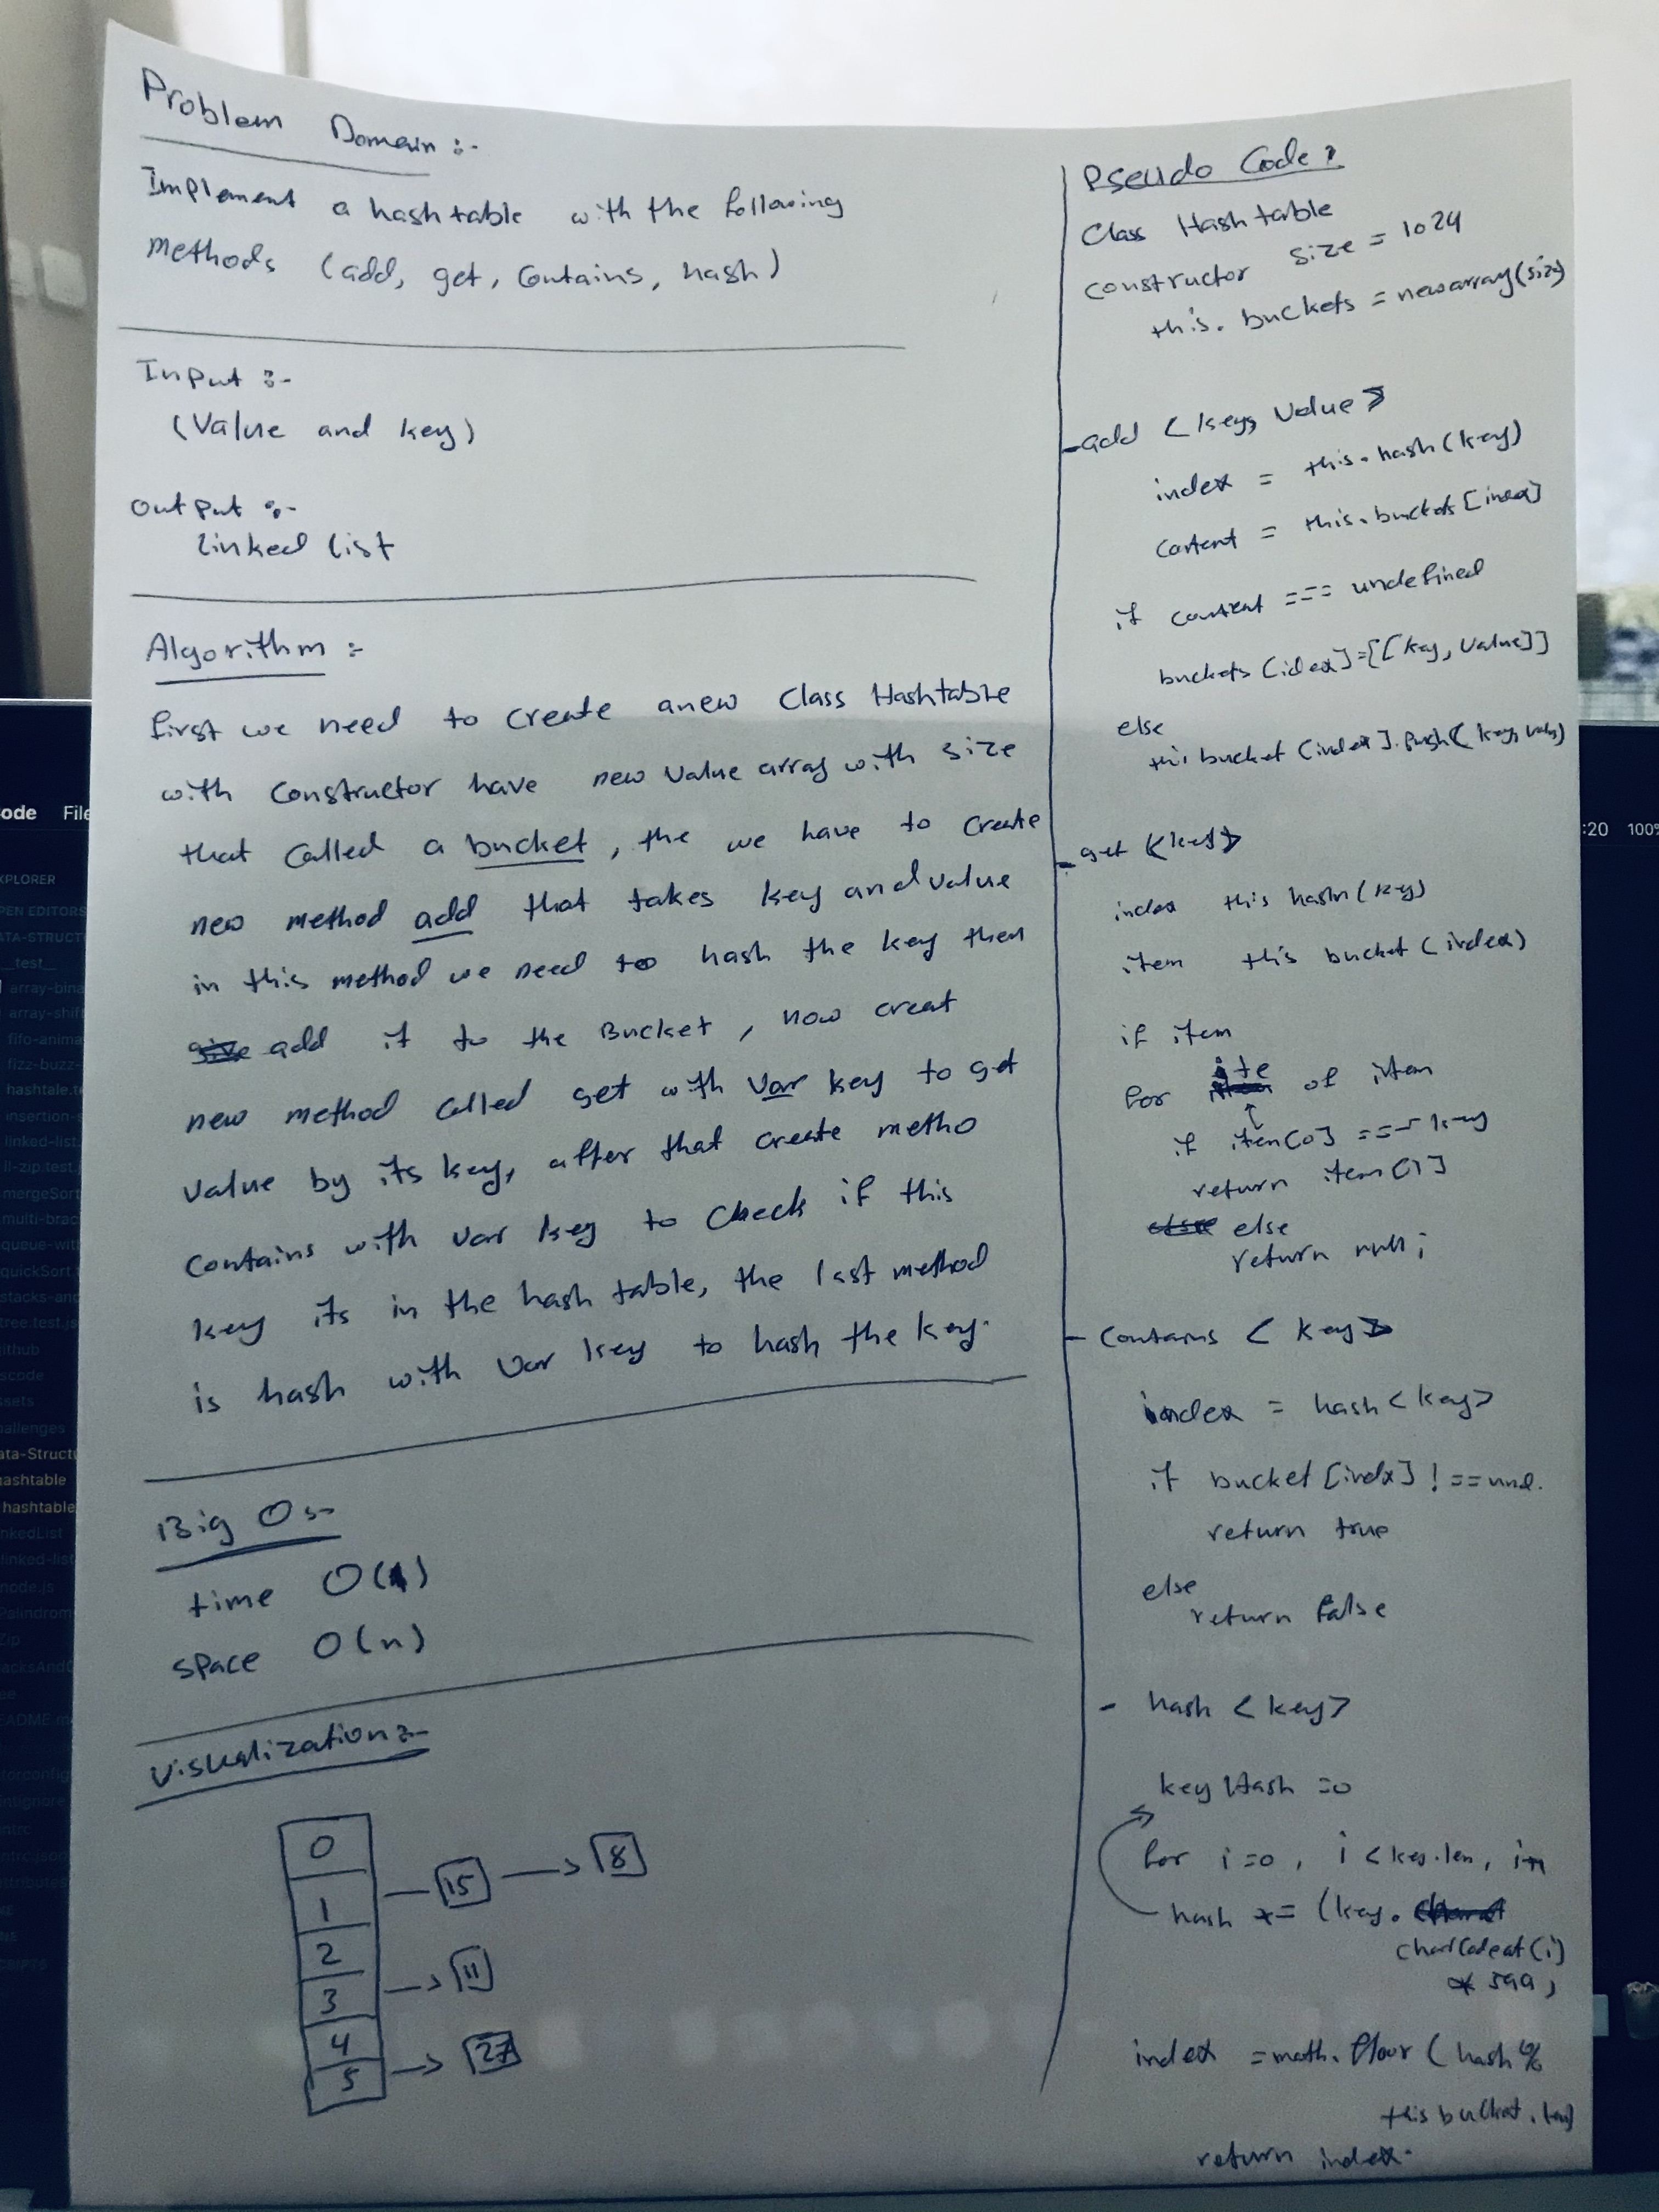 Problem Domain :-
Implement a hashtable with the following
methods (add, get, Contains, hash)
Input :-
(Value and key)
output :-
Linked list
Algorithm :-
first we need to create anew Class Hashtable
with Constructor have new value array with size
that Called a bucket, the we have to create
new method add that takes key and value
in this method we need to hash the key then
add it to the Bucket, now creat
new method Called get with var key to get
value by its key, after that create metho
Contains with var key to Check if this
key its in the hash table, the last method
is hash with var key to hash the key.
Big O:-
time O(1)
space O(n)
Visualization:-
0
1
15
8
2
3
11
4
5
27
Pseudo Code:
Class Hashtable
constructor size = 1024
this. buckets = new array(size)
- add < key, value >
index = this. hash(key)
content = this. buckets [index]
if content === undefined
buckets [idex]=[[key, value]]
else
this bucket [index]. push( key, value)
- get <key>
index this hash(key)
item this bucket (index)
if item
for ite of item
if item[0] === key
return item[1]
else
return null;
- Contains < key>
index = hash<key>
if bucket [indx] !==und.
return true
else
return false
- hash <key>
key Hash =0
for i=0, i <key.len, i++
hash += (key.
charCodeat(i)
* 599,
index = math. floor ( hash %
this bucket. len)
return index.
ode File
:20 100%
XPLORER
PEN EDITORS
ATA-STRUCT
__test__
array-bina
array-shif
fifo-anima
fizz-buzz-
hashtale.te
insertion-s
linked-list.
ll-zip.test.j
mergeSort
multi-brac
queue-wit
quickSort.t
stacks-and
tree.test.js
ithub
scode
ssets
hallenges
ata-Struct
ashtable
hashtable
nkedList
linked-list
node.js
Palindrom
Zip
acksAndQ
ee
EADME.m
torconfig
ntignore
ntrc
ntrc.json
tributes